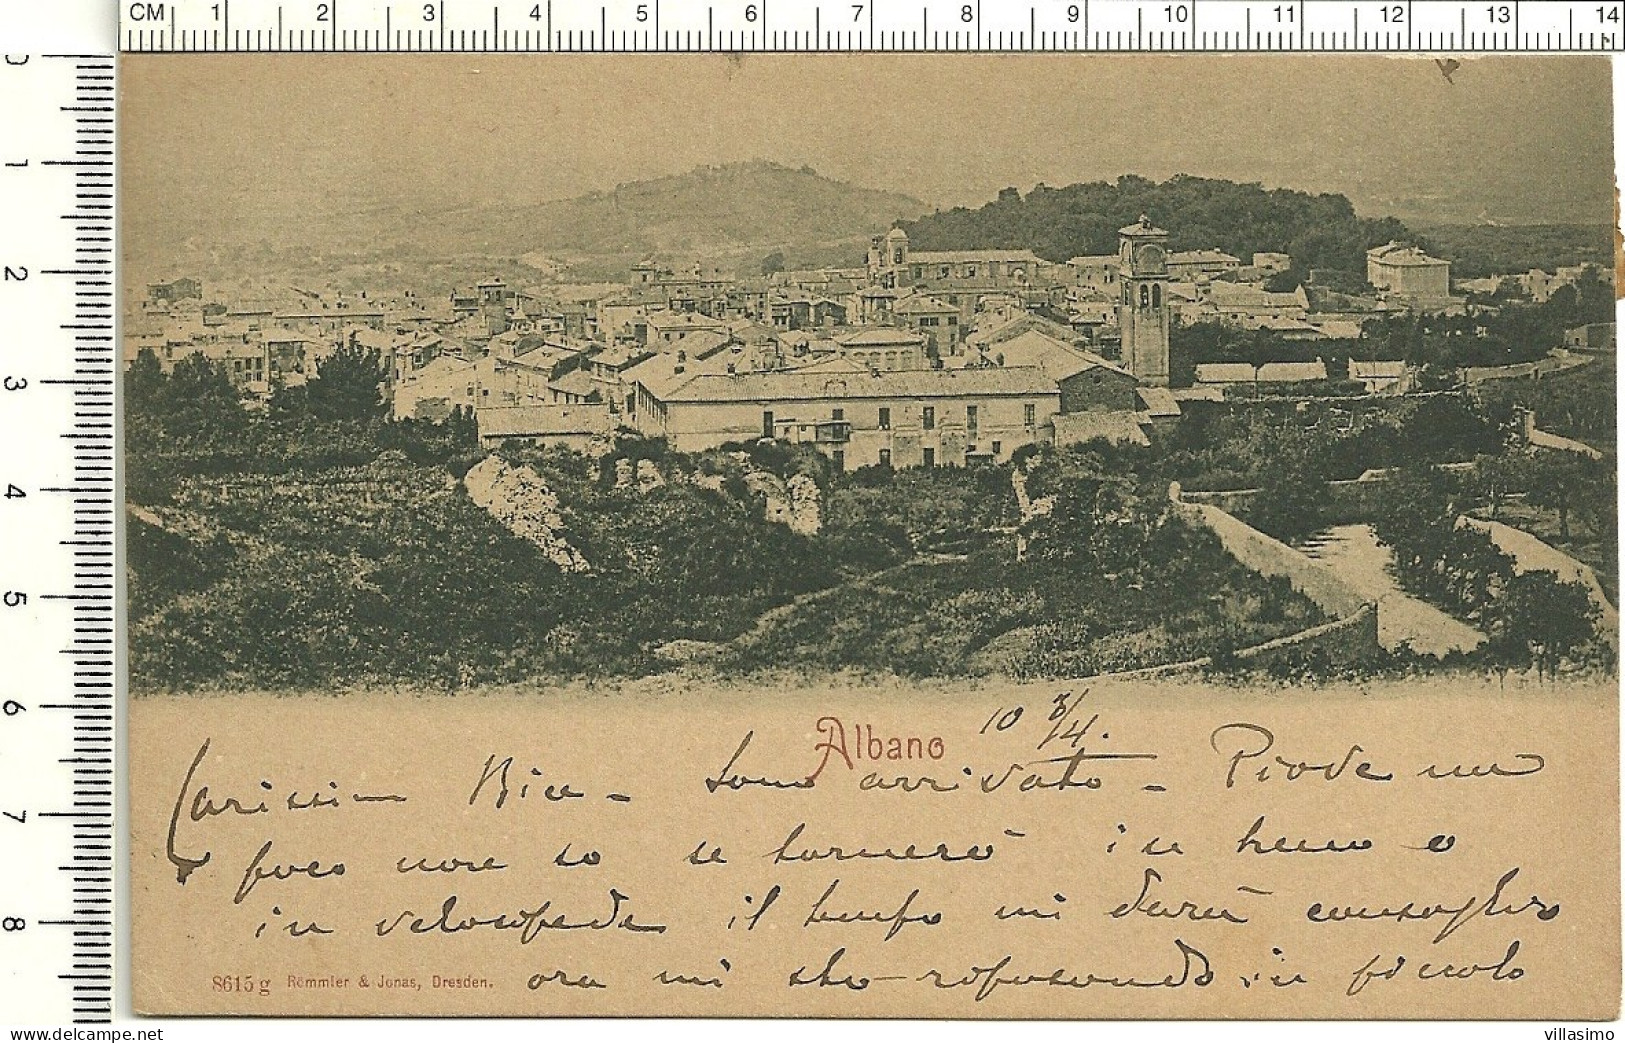 CM 1 2 3 4 5 6 7 8 9 10 11 12 13 14
0 1 2 3 4 5 6 7 8
Albano
10 3/4.
Carissim Bice - Sono arrivato - Piove un
poco non so se tornerò in treno o
in velocipede il tempo mi darà consiglio
ora mi sto riposando in piccolo
8615 g Römmler & Jonas, Dresden.
villasimo